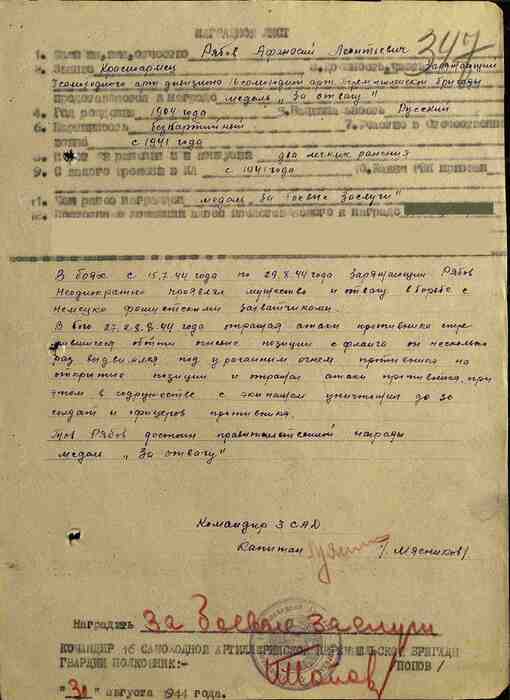 НАГРАДНОЙ ЛИСТ
347
1. Фамилия, имя, отчество Рябов Афанасий Леонтьевич
2. Звание Красноармеец 3. Должность, часть Заряжающий
3 самоходного арт дивизиона 16 самоходной арт. Перемышльской бригады
представляется к награде медаль „За отвагу"
4. Год рождения 1904 года 5. Национальность Русский
6. Партийность беспартийный 7. Участие в Отечественной
войне с 1941 года
8. Имеет ли ранения и контузии два легких ранения
9. С какого времени в КА с 1941 года 10. Каким РВК призван
11. Чем ранее награжден медаль „За боевые заслуги"
12. Постоянный домашний адрес представляемого к награде
В боях с 15.7.44 года по 29.8.44 года заряжающий Рябов
Неоднократно проявлял мужество и отвагу в борьбе с
немецко фашистскими захватчиками.
В бою 27, 28.8.44 года отражая атаки противника стре-
мившиеся обойти огневые позиции с фланга он несколько
раз выдвигался под ураганным огнем противника на
открытые позиции и отражал атаки противника, при
этом в содружестве с экипажем уничтожил до 30
солдат и офицеров противника.
Тов Рябов достоин правительственной награды
медаль „За отвагу"
Командир 3 САД
Капитан /Мясников/
Наградить За боевые заслуги
КОМАНДИР 16 САМОХОДНОЙ АРТИЛЛЕРИЙСКОЙ ПЕРЕМЫШЛЬСКОЙ БРИГАДЫ
ГВАРДИИ ПОЛКОВНИК:- Попов /ПОПОВ/
"31" августа 1944 года.